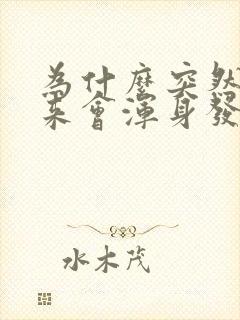 為什麼突然
来會渾身發
水木茂